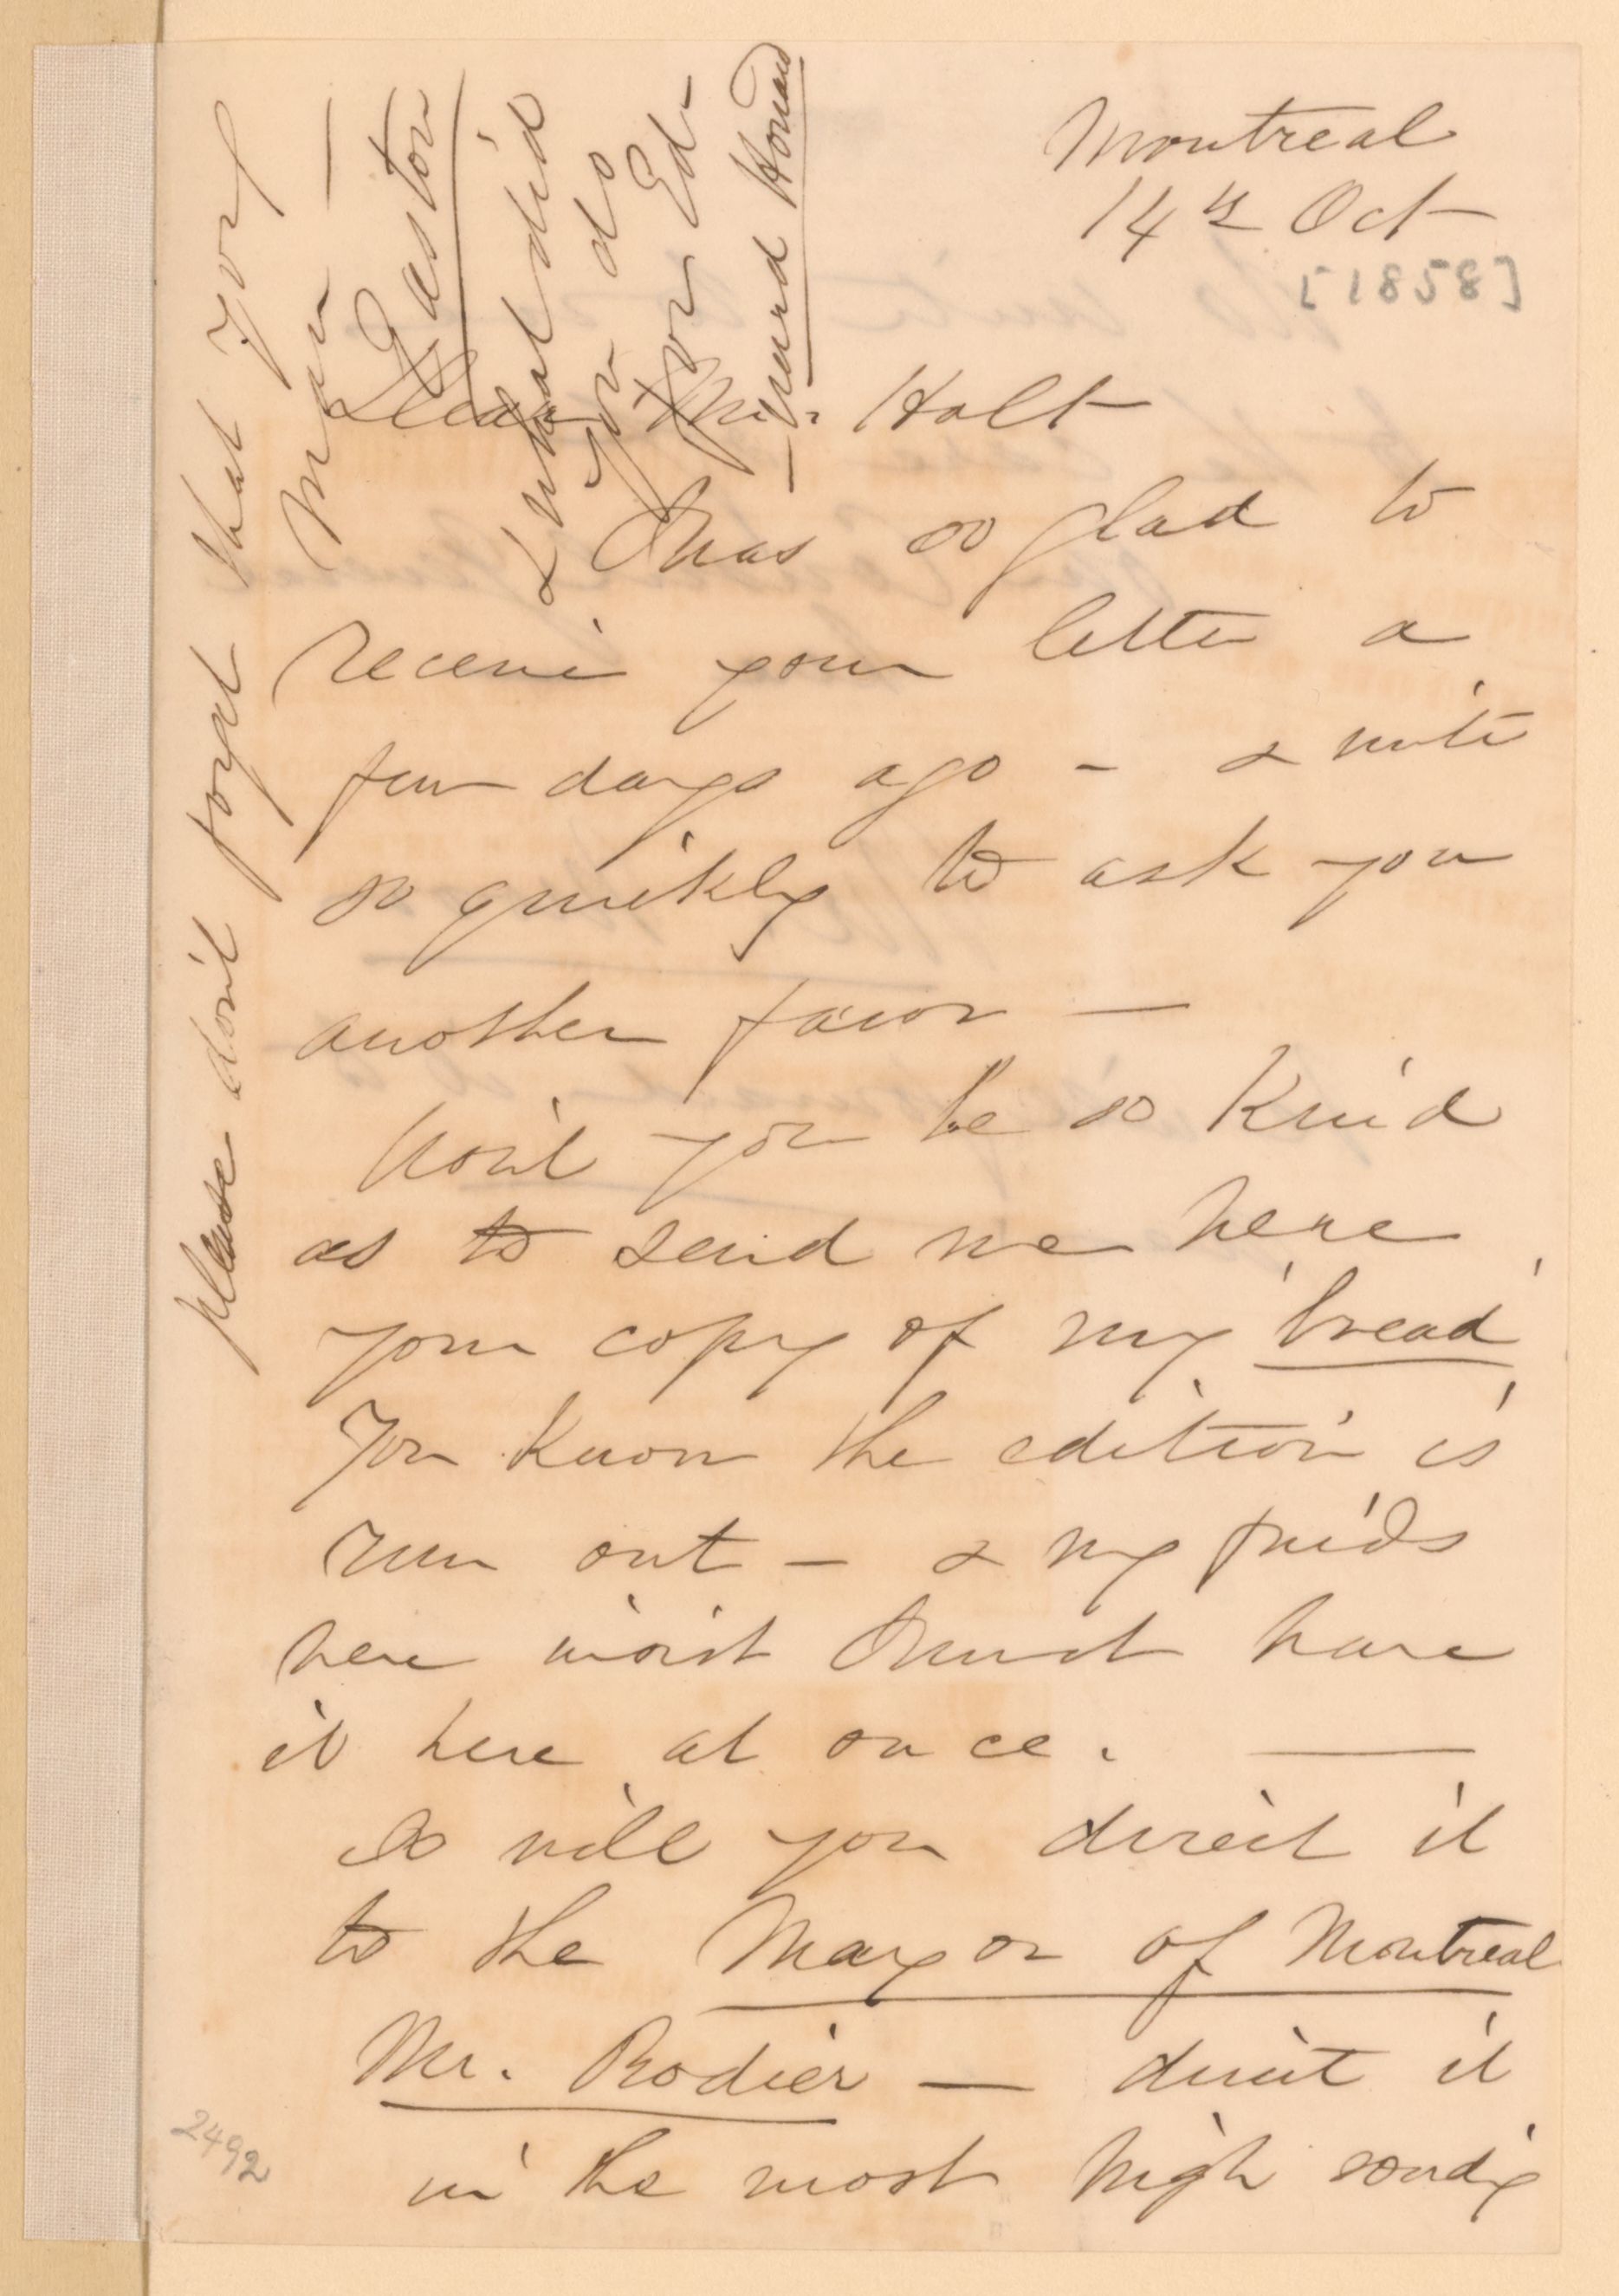 Montreal
14th Oct
[1858]
Dear Mr. Holt
I was so glad to
receive your letter a
few days ago - & write
so quickly to ask you
another favor —
Won't you be so kind
as to send me here
your copy of my 'bread'
You know the edition is
run out - & my friends
here insist I must have
it here at once. —
So will you direct it
to the Mayor of Montreal
Mr. Rodier — direct it
in the most high soundg
please don't forget that you
man —
Easton
& what did
you do
for Ed-
-ward Howard
2492